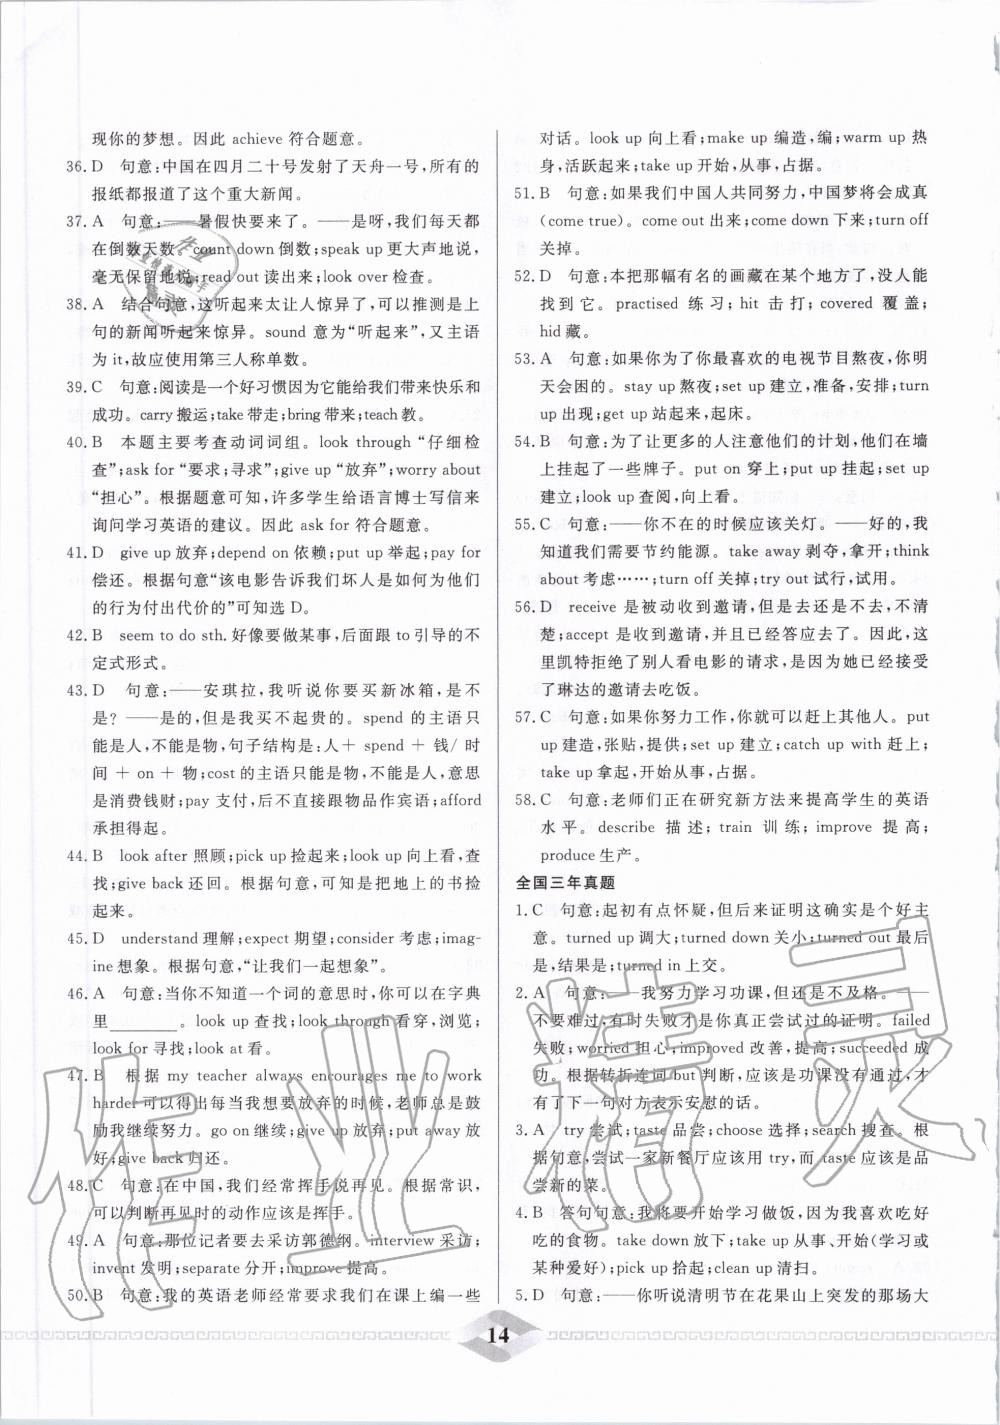 现你的梦想。因此 achieve 符合题意。
36. D 句意:中国在四月二十号发射了天舟一号,所有的
报纸都报道了这个重大新闻。
37. A 句意:——暑假快要来了。——是呀,我们每天都
在倒数天数。count down 倒数;speak up 更大声地说,
毫无保留地说;read out 读出来;look over 检查。
38. A 结合句意,这听起来太让人惊异了,可以推测是上
句的新闻听起来惊异。sound 意为“听起来”,又主语
为 it,故应使用第三人称单数。
39. C 句意:阅读是一个好习惯因为它能给我们带来快乐和
成功。carry 搬运;take 带走;bring 带来;teach 教。
40. B 本题主要考查动词词组。look through “仔细检
查”;ask for “要求;寻求”;give up “放弃”;worry about
“担心”。根据题意可知,许多学生给语言博士写信来
询问学习英语的建议。因此 ask for 符合题意。
41. D give up 放弃;depend on 依赖;put up 举起;pay for
偿还。根据句意“该电影告诉我们坏人是如何为他们
的行为付出代价的”可知选 D。
42. B seem to do sth. 好像要做某事,后面跟 to 引导的不
定式形式。
43. D 句意:——安琪拉,我听说你要买新冰箱,是不
是?——是的,但是我买不起贵的。spend 的主语只
能是人,不能是物,句子结构是:人＋ spend ＋ 钱/ 时
间 ＋ on ＋ 物;cost 的主语只能是物,不能是人,意思
是消费钱财;pay 支付,后不直接跟物品作宾语;afford
承担得起。
44. B look after 照顾;pick up 捡起来;look up 向上看,查
找;give back 还回。根据句意,可知是把地上的书捡
起来。
45. D understand 理解;expect 期望;consider 考虑;imag-
ine 想象。根据句意,“让我们一起想象”。
46. A 句意:当你不知道一个词的意思时,你可以在字典
里________。look up 查找;look through 看穿,浏览;
look for 寻找;look at 看。
47. B 根据 my teacher always encourages me to work
harder 可以得出每当我想要放弃的时候,老师总是鼓
励我继续努力。go on 继续;give up 放弃;put away 放
好;give back 归还。
48. C 句意:在中国,我们经常挥手说再见。根据常识,
可以判断再见时的动作应该是挥手。
49. A 句意:那位记者要去采访郭德纲。interview 采访;
invent 发明;separate 分开;improve 提高。
50. B 句意:我的英语老师经常要求我们在课上编一些
对话。look up 向上看;make up 编造,编;warm up 热
身,活跃起来;take up 开始,从事,占据。
51. B 句意:如果我们中国人共同努力,中国梦将会成真
(come true)。come out 出来;come down 下来;turn off
关掉。
52. D 句意:本把那幅有名的画藏在某个地方了,没人能
找到它。practised 练习;hit 击打;covered 覆盖;
hid 藏。
53. A 句意:如果你为了你最喜欢的电视节目熬夜,你明
天会困的。stay up 熬夜;set up 建立,准备,安排;turn
up 出现;get up 站起来,起床。
54. B 句意:为了让更多的人注意他们的计划,他们在墙
上挂起了一些牌子。put on 穿上;put up 挂起;set up
建立;look up 查阅,向上看。
55. C 句意:——你不在的时候应该关灯。——好的,我
知道我们需要节约能源。take away 剥夺,拿开;think
about 考虑……;turn off 关掉;try out 试行,试用。
56. D receive 是被动收到邀请,但是去还是不去,不清
楚;accept 是收到邀请,并且已经答应去了。因此,这
里凯特拒绝了别人看电影的请求,是因为她已经接受
了琳达的邀请去吃饭。
57. C 句意:如果你努力工作,你就可以赶上其他人。put
up 建造,张贴,提供;set up 建立;catch up with 赶上;
take up 拿起,开始从事,占据。
58. C 句意:老师们正在研究新方法来提高学生的英语
水平。describe 描述;train 训练;improve 提高;
produce 生产。
全国三年真题
1. C 句意:起初有点怀疑,但后来证明这确实是个好主
意。turned up 调大;turned down 关小;turned out 最后
是,结果是;turned in 上交。
2. A 句意:——我努力学习功课,但还是不及格。——
不要难过,有时失败才是你真正尝试过的证明。failed
失败;worried 担心;improved 改善,提高;succeeded 成
功。根据转折连词 but 判断,应该是功课没有通过,才
有了下一句对方表示安慰的话。
3. A try 尝试;taste 品尝;choose 选择;search 搜查。根
据句意,尝试一家新餐厅应该用 try,而 taste 应该是品
尝新的菜。
4. B 答句句意:我将要开始学习做饭,因为我喜欢吃好
吃的食物。take down 放下;take up 从事、开始(学习或
某种爱好);pick up 拾起;clean up 清扫。
5. D 句意:——你听说清明节在花果山上突发的那场大
14
作业精灵